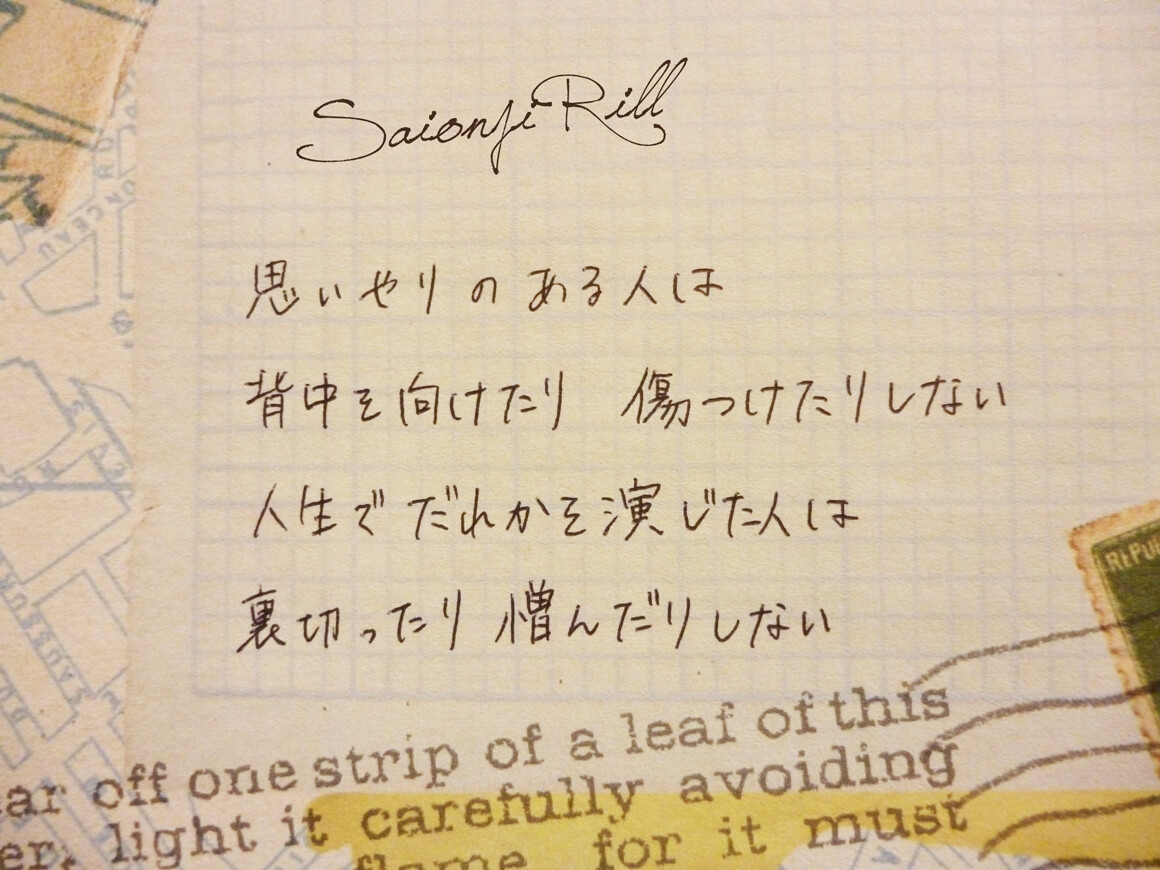 Saionji Rill
思いやりのある人は
背中を向けたり 傷つけたりしない
人生でだれかを演じた人は
裏切ったり 憎んだりしない
off one strip of a leaf of this
light it carefully avoiding
flame for it must